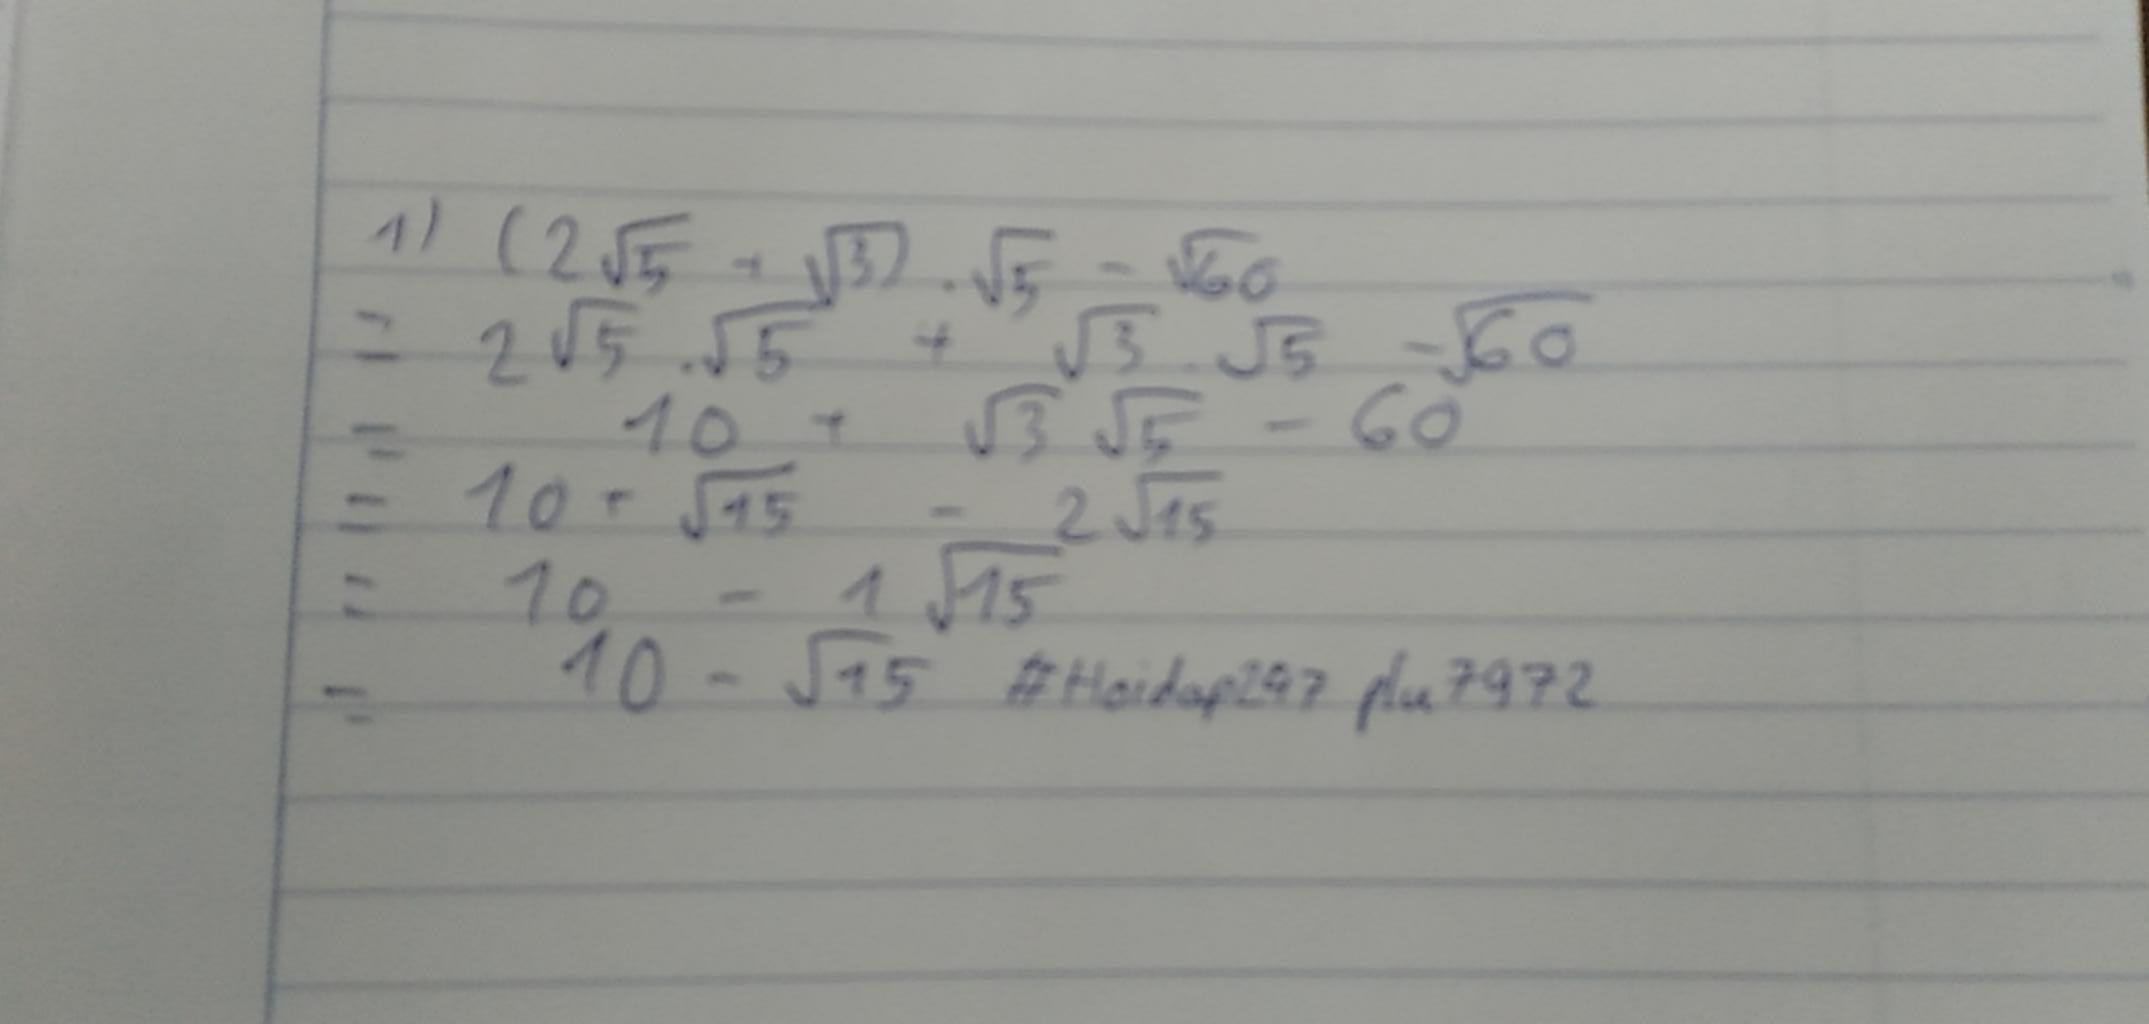 1) (2√5 + √3) . √5 - √60
= 2√5 . √5 + √3 . √5 - √60
= 10 + √3 √5 - 60
= 10 + √15 - 2√15
= 10 - 1√15
= 10 - √15 #Hoidap247 plu7972